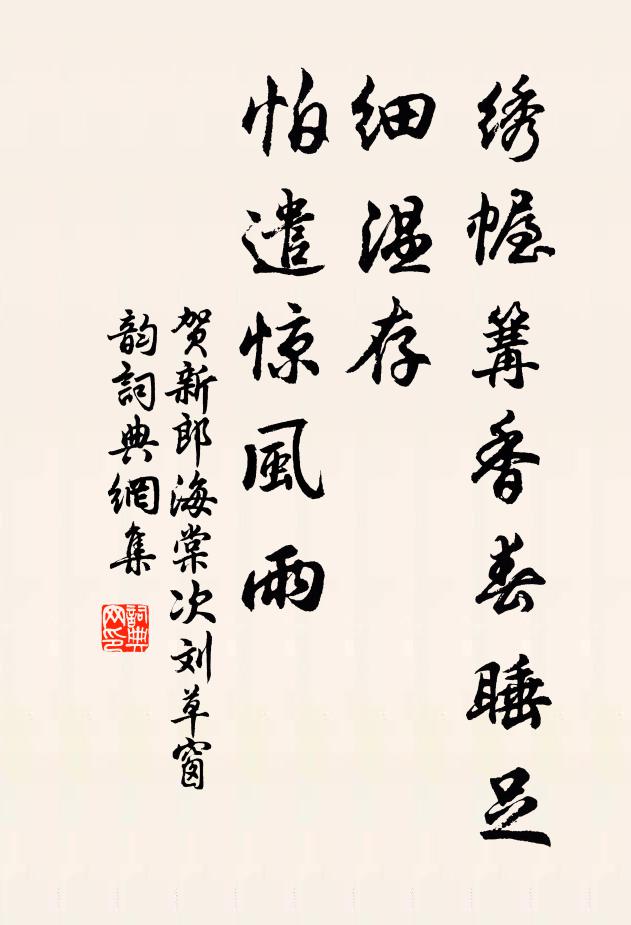 绣幄篝香春睡足
细温存
怕遣惊風雨
贺新郎海棠次刘草窗
韵詞典網集
詞典
网印